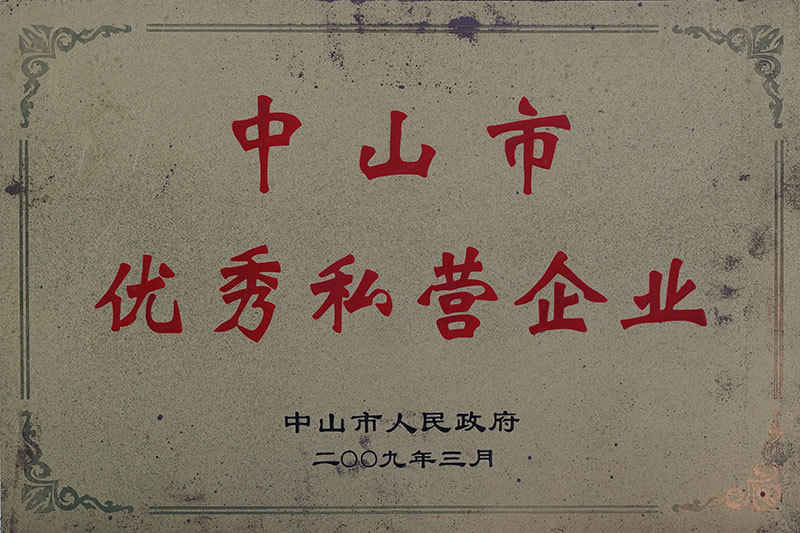 中山市
优秀私营企业
中山市人民政府
二〇〇九年三月